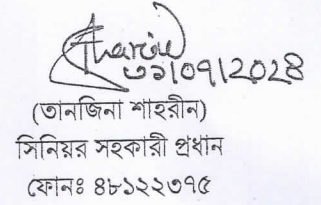 ৩১/০৭/২০২৪
(তানজিনা শাহরীন)
সিনিয়র সহকারী প্রধান
ফোনঃ ৪৮১২২৩৭৫